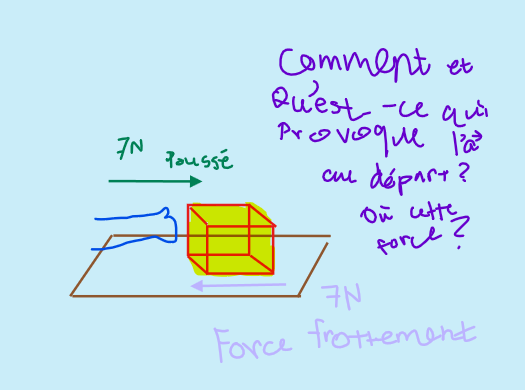 Comment et
Qu'est-ce qui
Provoque l'a⃗
au départ?
Où cette
force?
7N
Poussé
7N
Force frottement